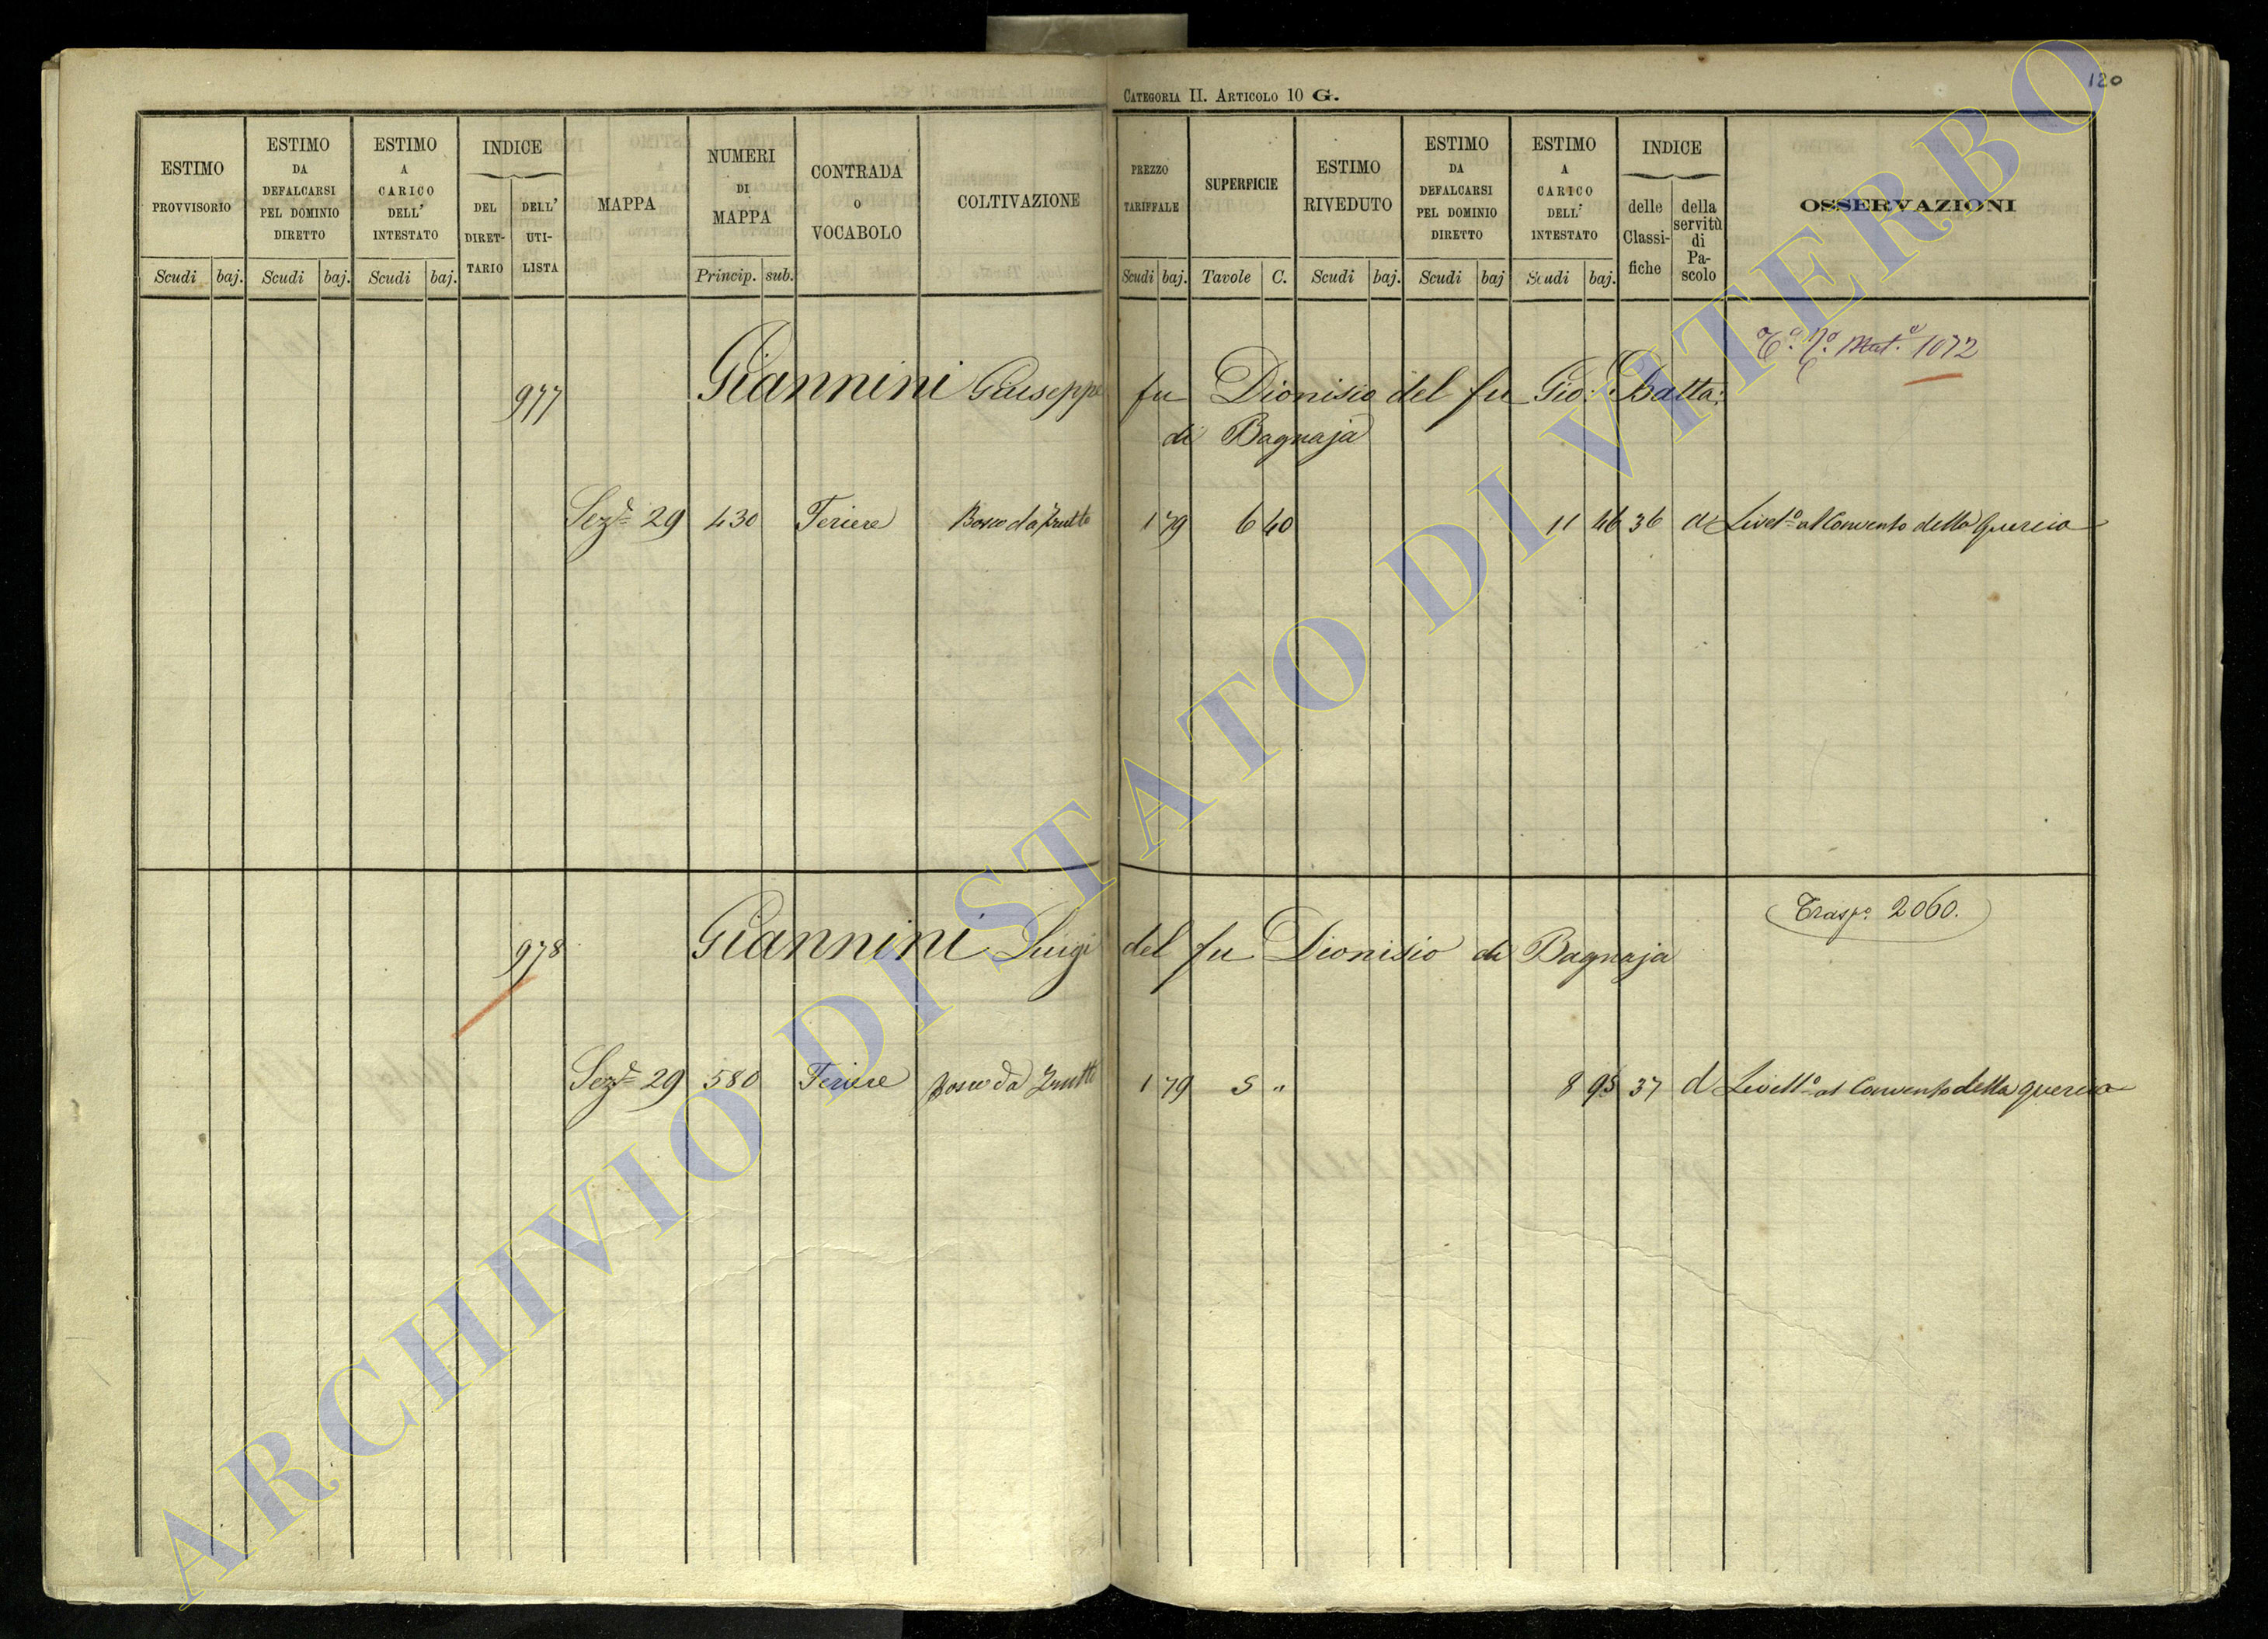 120
CATEGORIA II. ARTICOLO 10 G.
ESTIMO PROVVISORIO
Scudi baj.
ESTIMO DA DEFALCARSI PEL DOMINIO DIRETTO
Scudi baj.
ESTIMO A CARICO DELL' INTESTATO
Scudi baj.
INDICE
DEL DIRET-TARIO
DELL' UTI-LISTA
MAPPA
NUMERI DI MAPPA
Princip. sub.
CONTRADA O VOCABOLO
COLTIVAZIONE
PREZZO TARIFFALE
Scudi baj.
SUPERFICIE
Tavole C.
ESTIMO RIVEDUTO
Scudi baj.
ESTIMO DA DEFALCARSI PEL DOMINIO DIRETTO
Scudi baj
ESTIMO A CARICO DELL' INTESTATO
Scudi baj.
INDICE
delle Classi-fiche
della servitù di Pa-scolo
OSSERVAZIONI
Mat.e 1072
977 Giannini Giuseppe fu Dionisio del fu Gio: Batta:
di Bagnaja
Sez.e 29 430 Feriere Bosco da frutto 1 79 6 40 11 46 36 d Livel.o al Convento della Quercia
Trasp.o 2060.
978 Giannini Luigi del fu Dionisio di Bagnaja
Sez.e 29 580 Feriere Bosco da frutto 1 79 5 " 8 95 37 d Livell.o al Convento della Quercia
ARCHIVIO DI STATO DI VITERBO